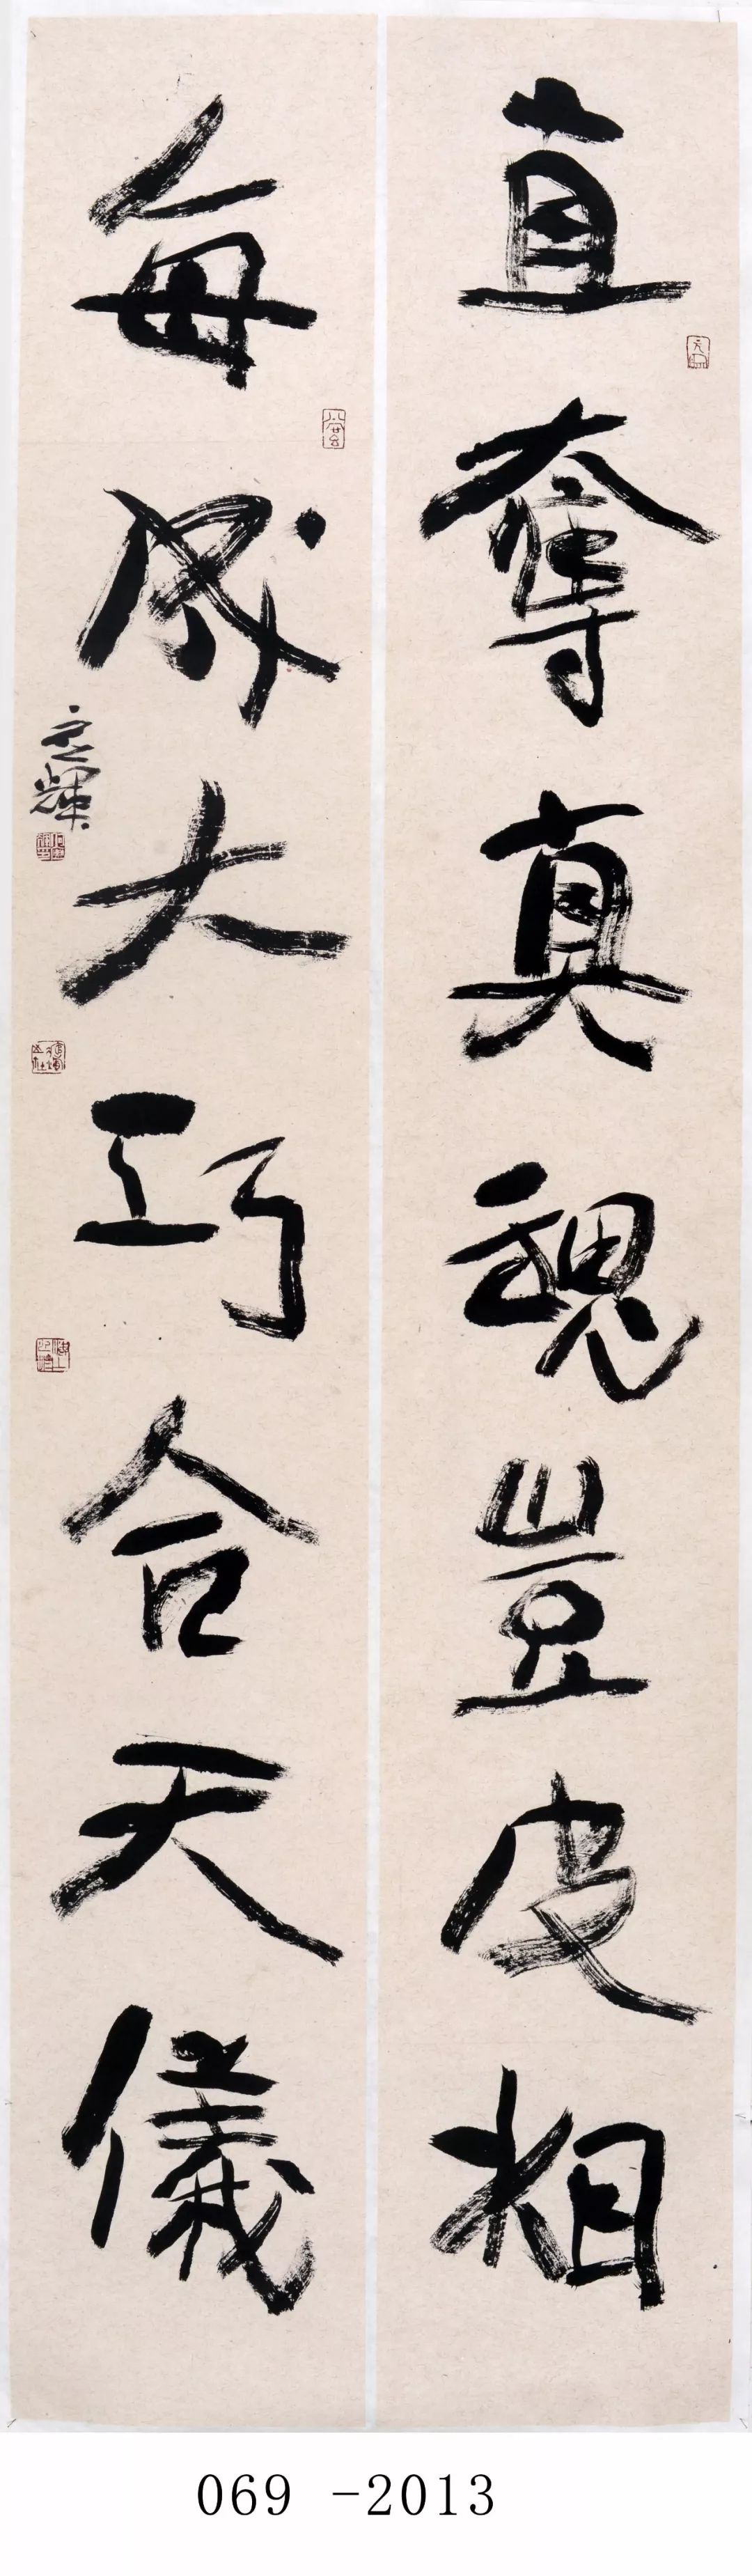 直奪真魂豈皮相
每成大巧合天儀
069 -2013